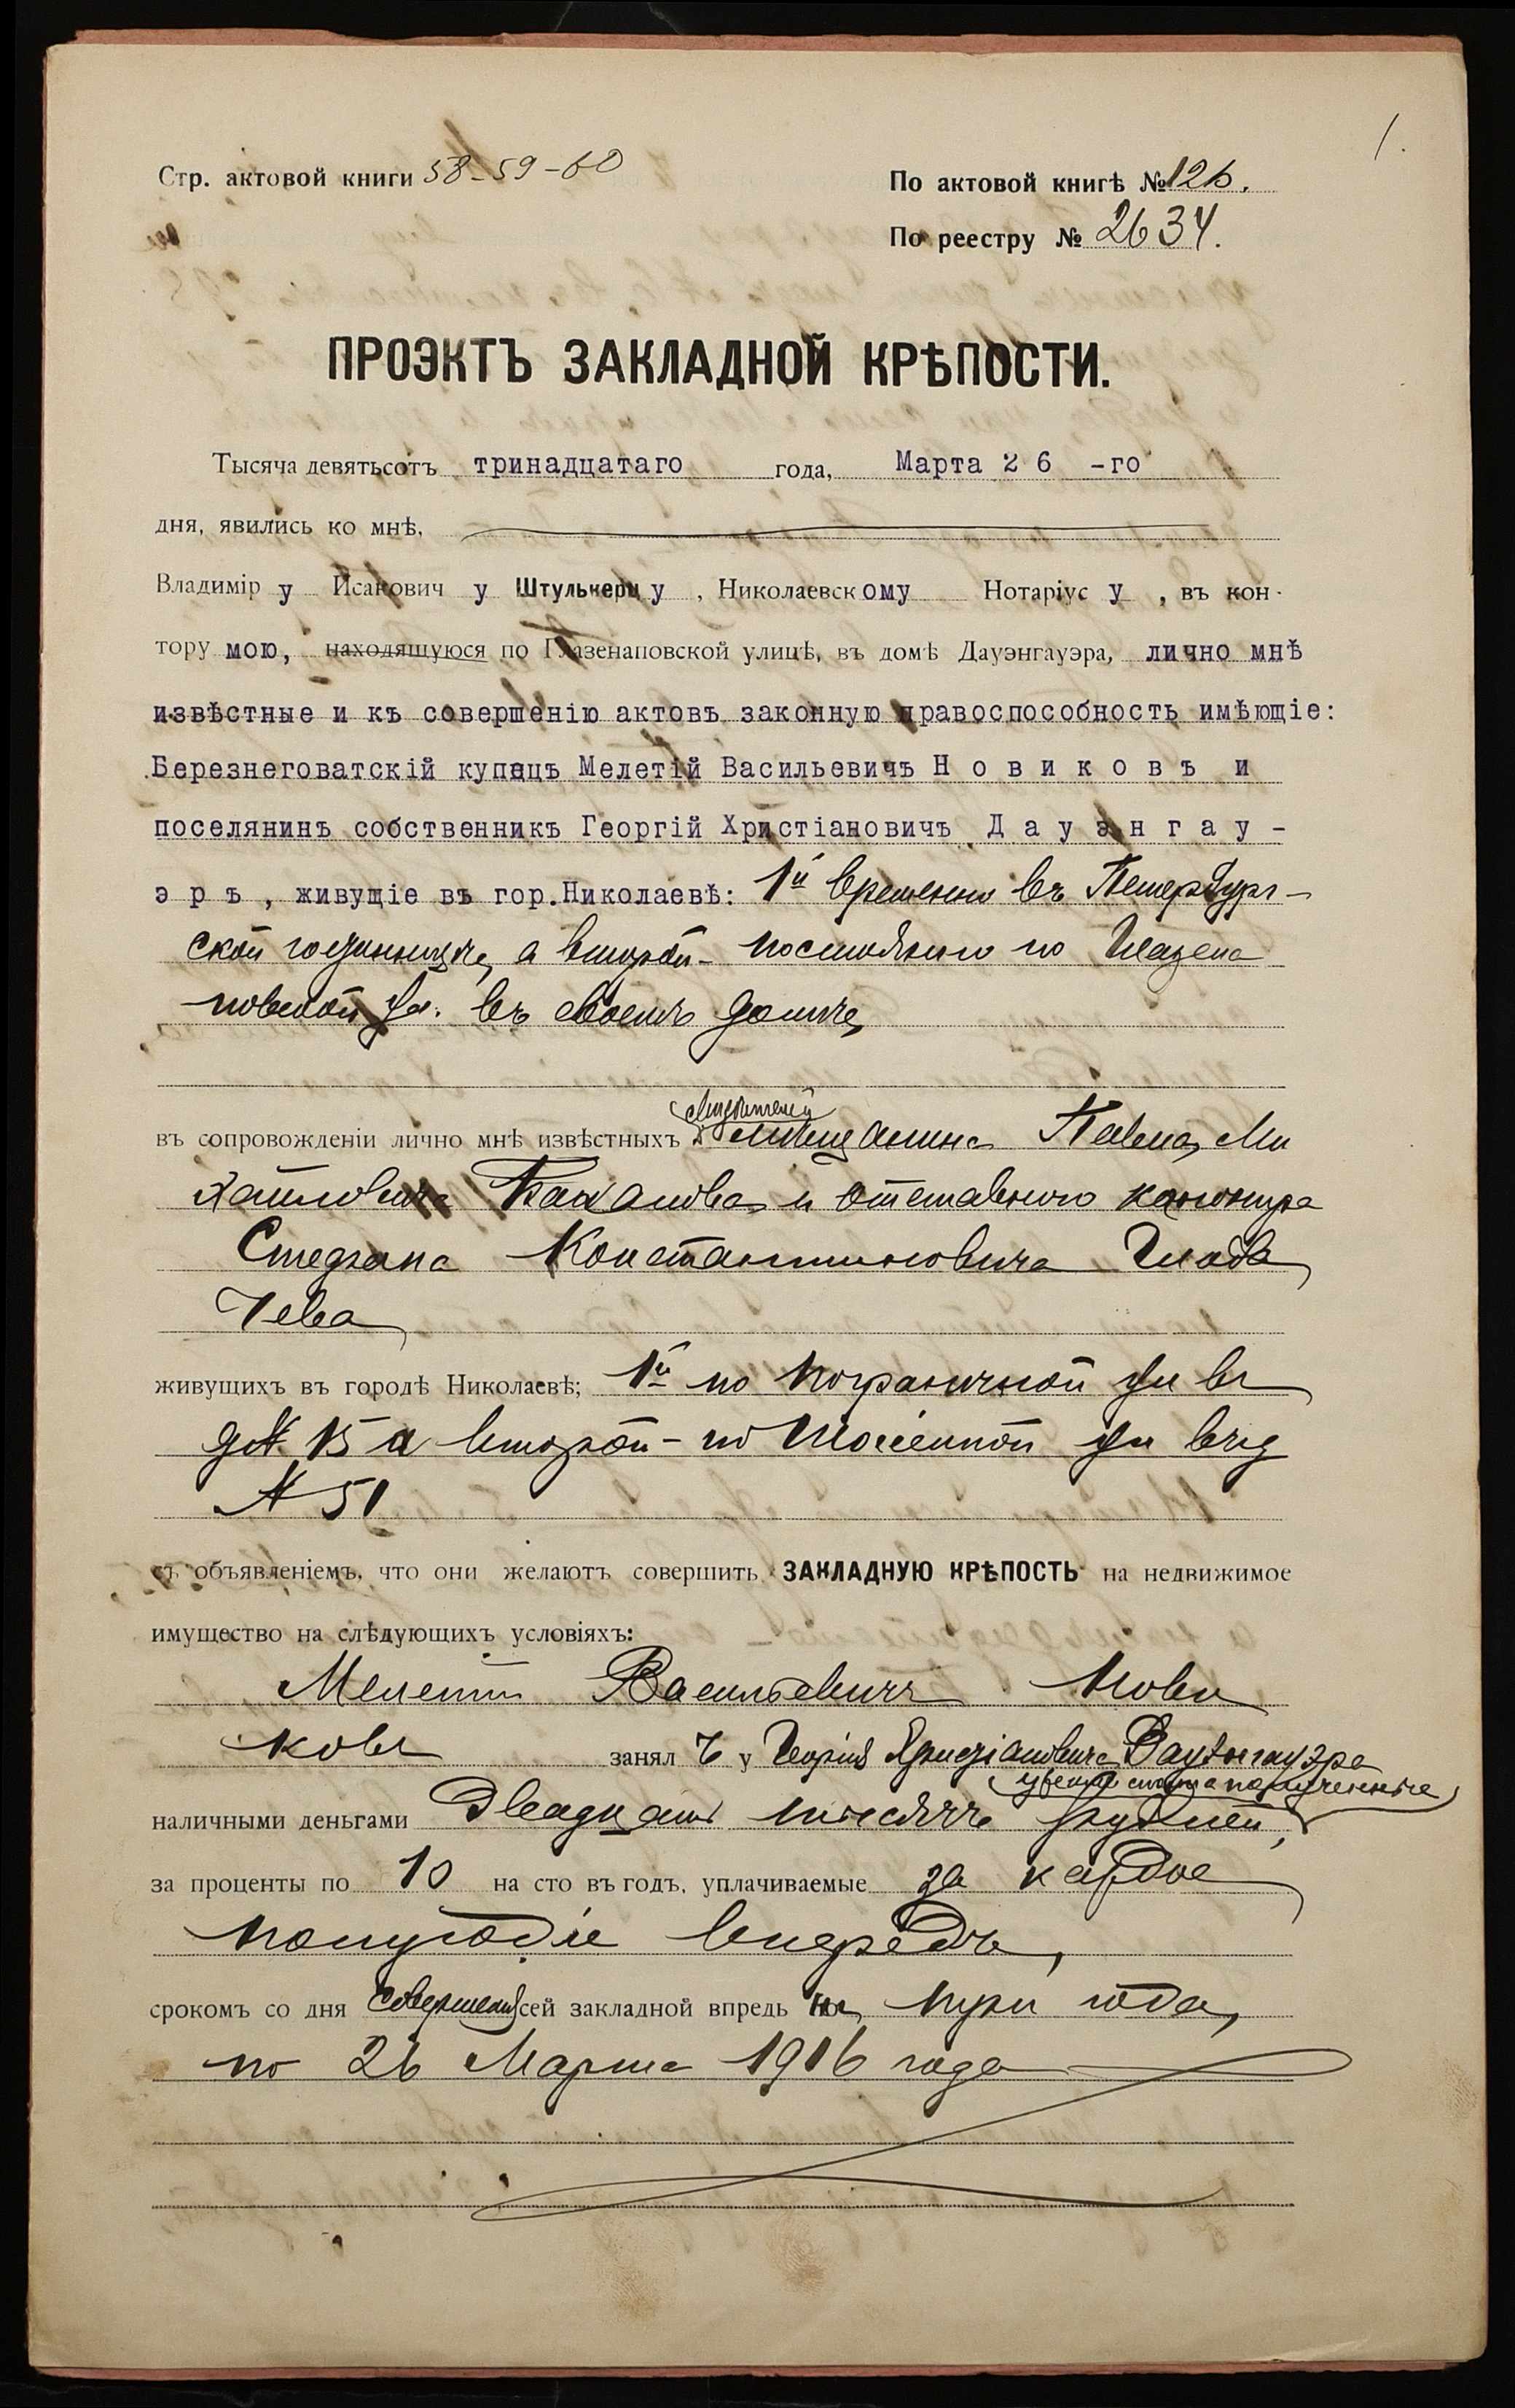 1.
Стр. актовой книги 58-59-60
По актовой книгѣ № 126.
По реестру № 2634.
ПРОЭКТЪ ЗАКЛАДНОЙ КРѢПОСТИ.
Тысяча девятьсотъ тринадцатаго года, Марта 26-го
дня, явились ко мнѣ,
Владимір у Исакович у Штулькерц у, Николаевскому Нотаріус у, въ кон-
тору мою, находящуюся по Глазенаповской улицѣ, въ домѣ Дауэнгауэра, лично мнѣ
извѣстные и къ совершенію актовъ законную правоспособность имѣющіе:
Березнеговатскій купецъ Мелетій Васильевичъ Новиковъ и
поселянинъ собственникъ Георгій Христіановичъ Дауэнгау-
эръ, живущіе въ гор.Николаевѣ: 1й временно въ Петербург-
ской гостинницѣ, а второй - постоянно по Глазена
повской ул. въ своемъ домѣ,
свидѣтелей
въ сопровожденіи лично мнѣ извѣстныхъ мѣщанина Павла Ми
хайловича и отставного канонира
Стефана Константиновича
чева
живущихъ въ городѣ Николаевѣ; 1й по Пограничной ул въ
д № 15 а второй - по ул въ д
№ 51
съ объявленіемъ, что они желаютъ совершить ЗАКЛАДНУЮ КРѢПОСТЬ на недвижимое
имущество на слѣдующихъ условіяхъ:
Мелетій Васильевичъ Нови
ковъ занял ъ у Георгія Христіановича Дауэнгауэра
наличными деньгами Двадцать тысячъ рублей,
за проценты по 10 на сто въ годъ, уплачиваемые за каждое
полугодіе впередъ,
срокомъ со дня совершенія сей закладной впредь на три года,
по 26 Марта 1916 года